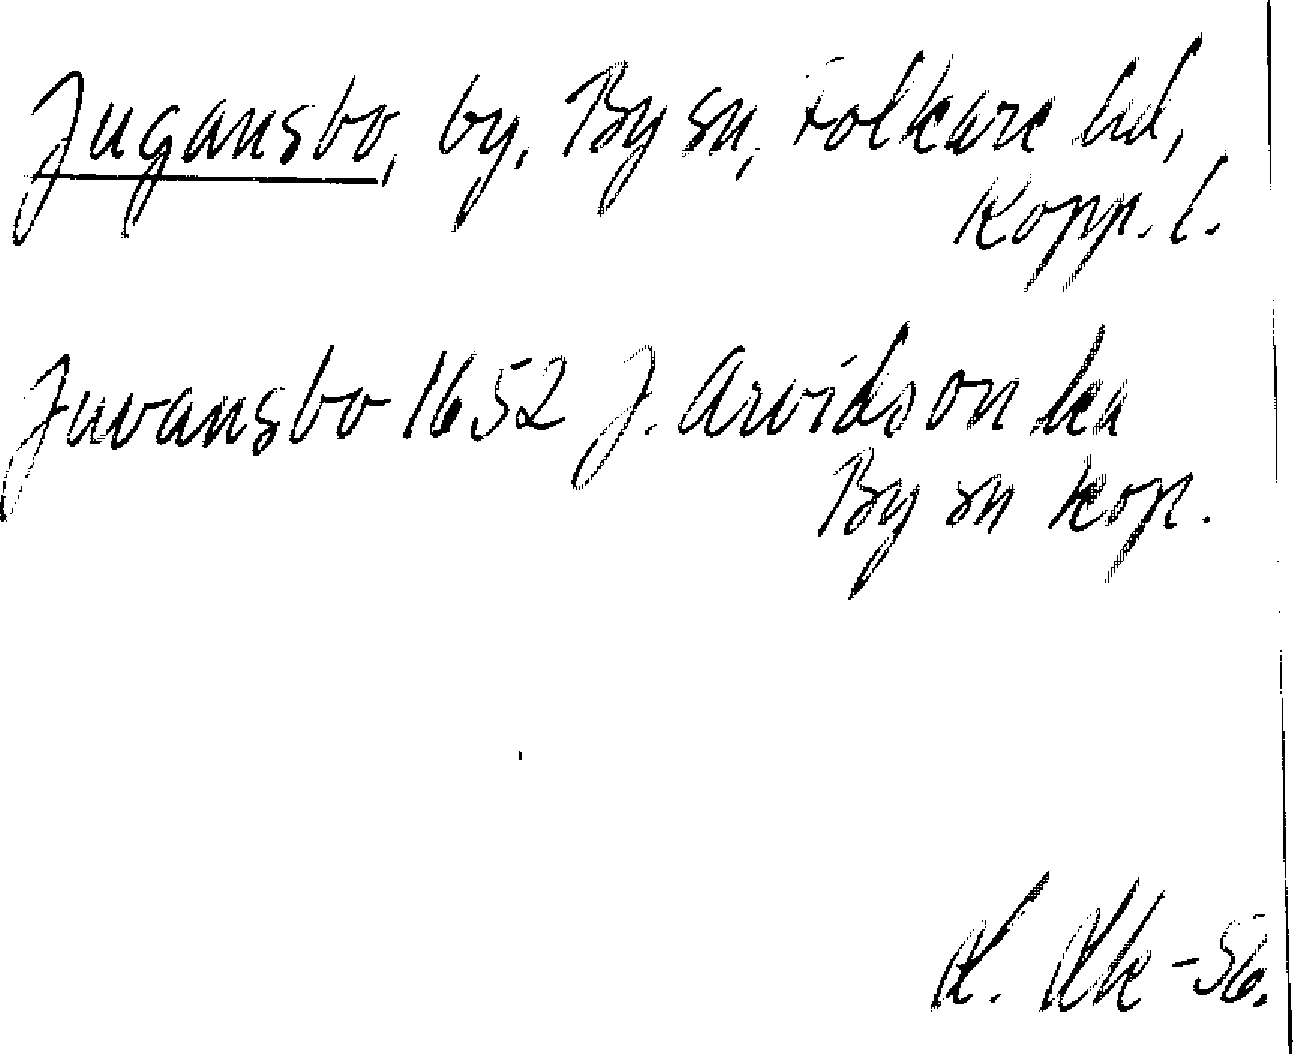 Jugansbo, by, By sn, Folkare hd,
Kopp. l.
Juvansbo 1652 J. Arvidson ka
By sn kop.
-56.